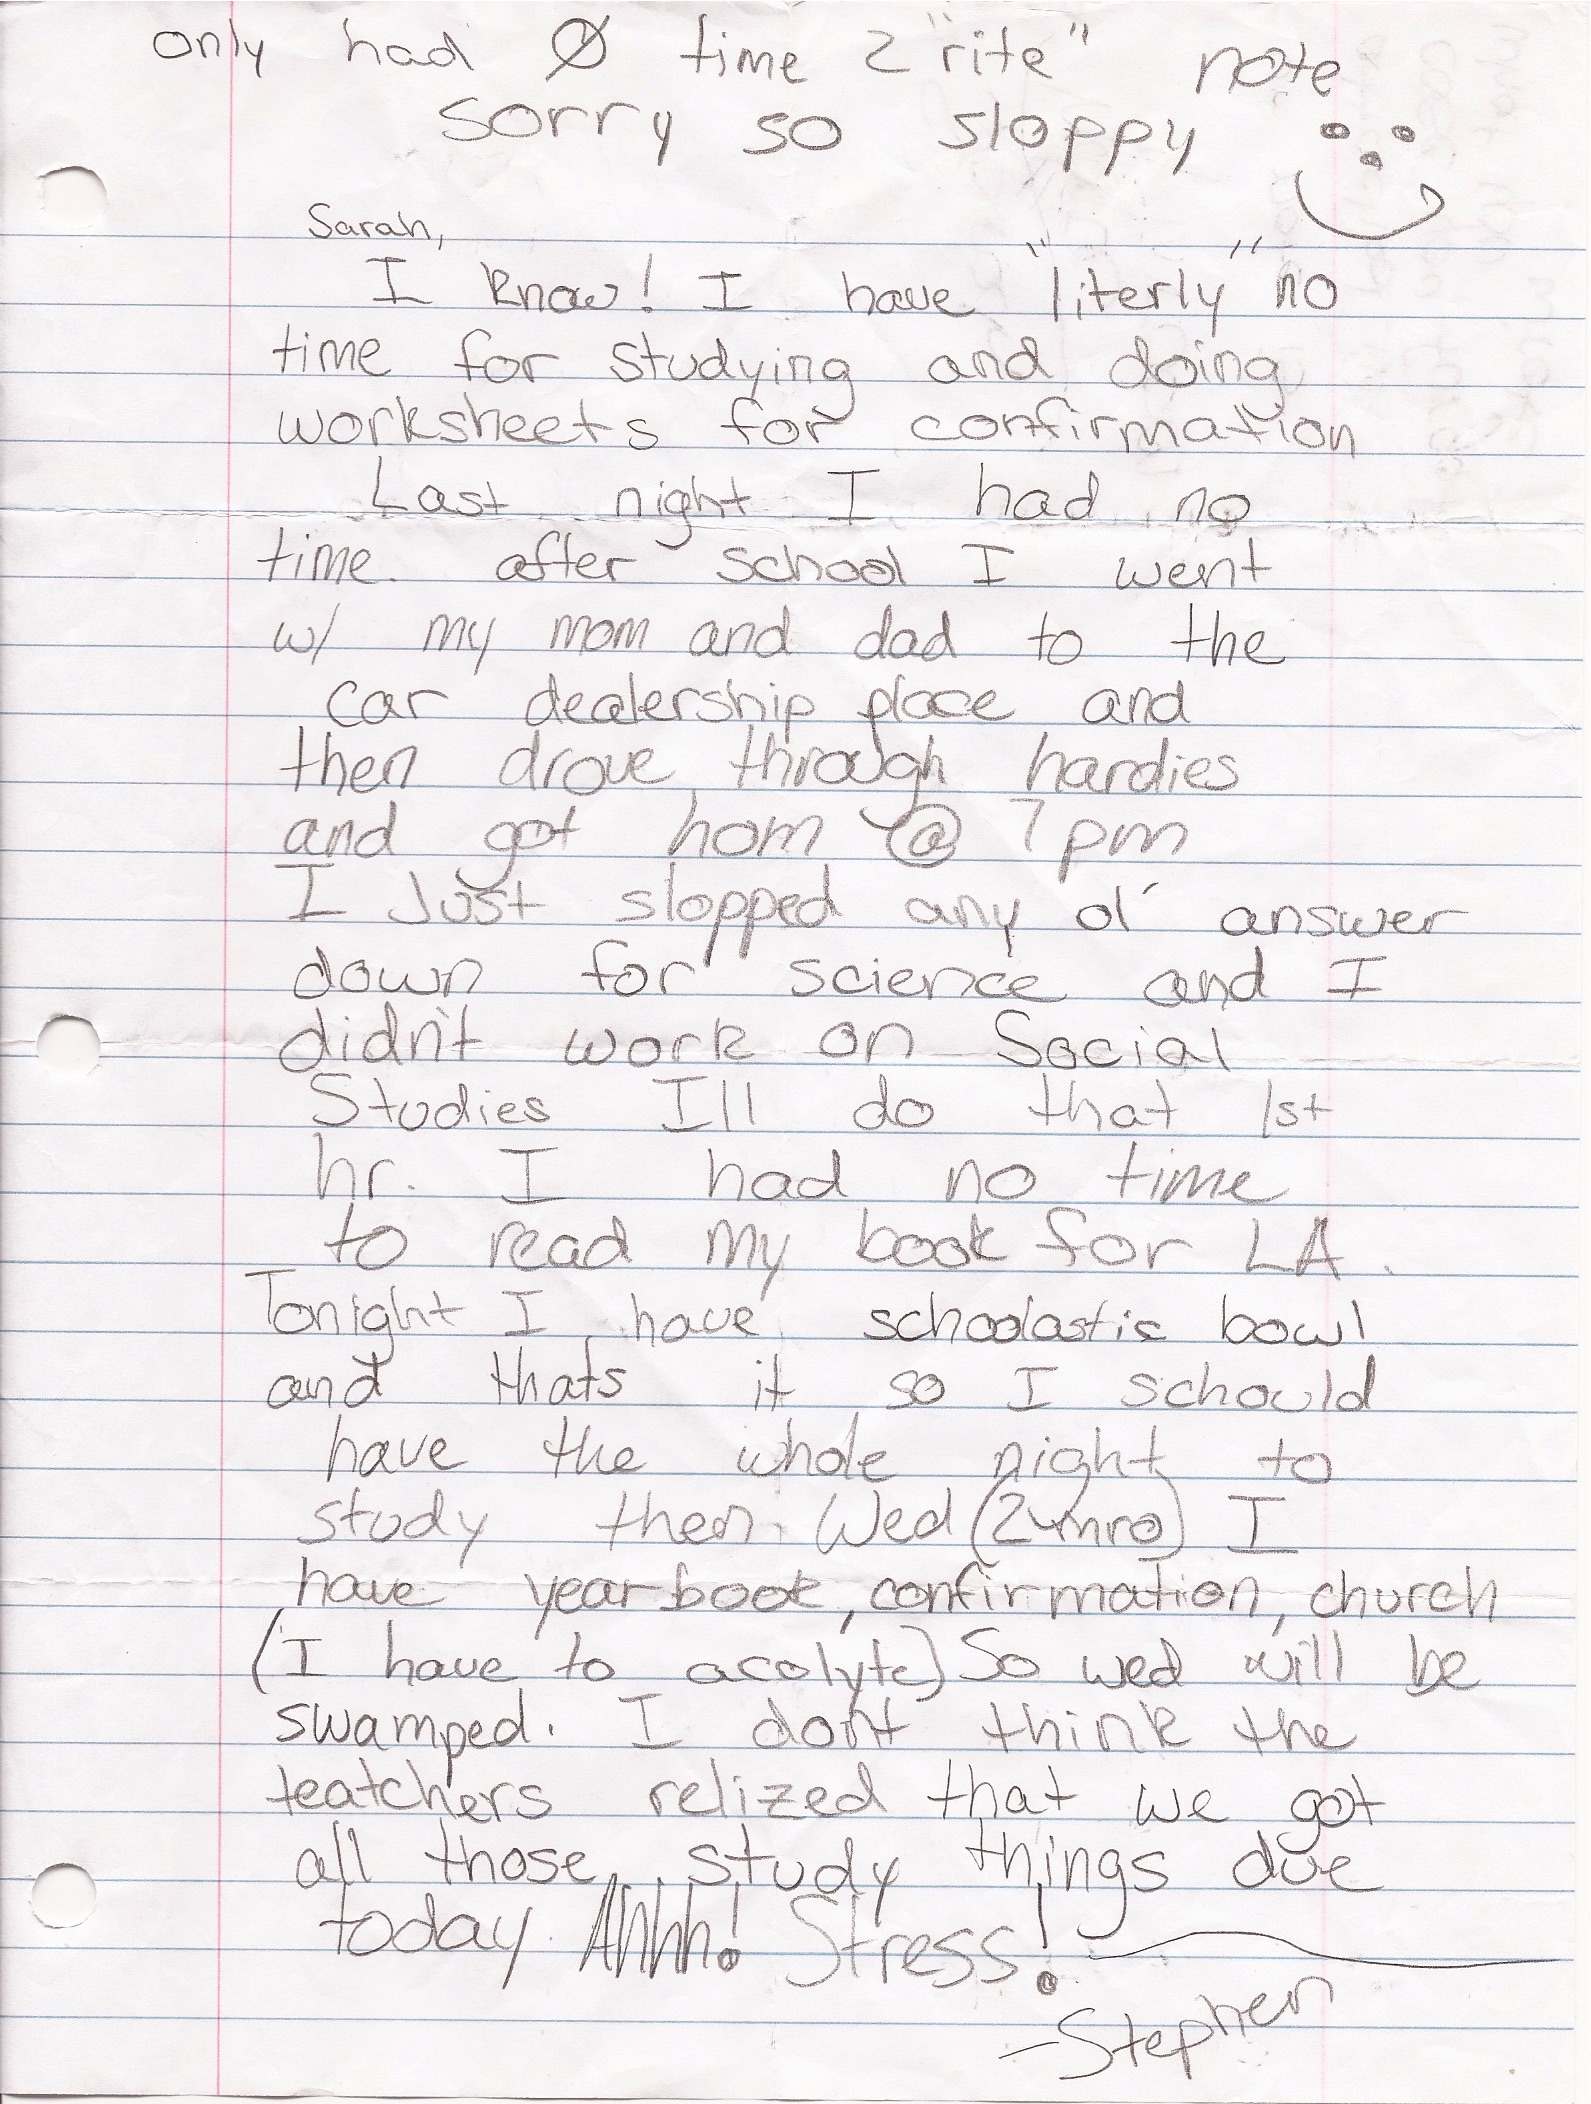 only had Ø time 2 "rite" note
sorry so sloppy
Sarah,
I know! I have "literly" no
time for studying and doing
worksheets for confirmation
Last night I had no
time. after school I went
w/ my mom and dad to the
car dealership place and
then drove through hardies
and got hom @ 7pm
I Just slopped any ol' answer
down for science and I
didn't work on Social
Studies I'll do that 1st
hr. I had no time
to read my book for LA.
Tonight I have schoolastic bowl
and thats it so I schould
have the whole night to
study then. Wed (2mro) I
have yearbook, confirmation, church
(I have to acolyte) So wed will be
swamped. I don't think the
teatchers relized that we got
all those study things due
today. Ahhh! Stress!
-Stephen